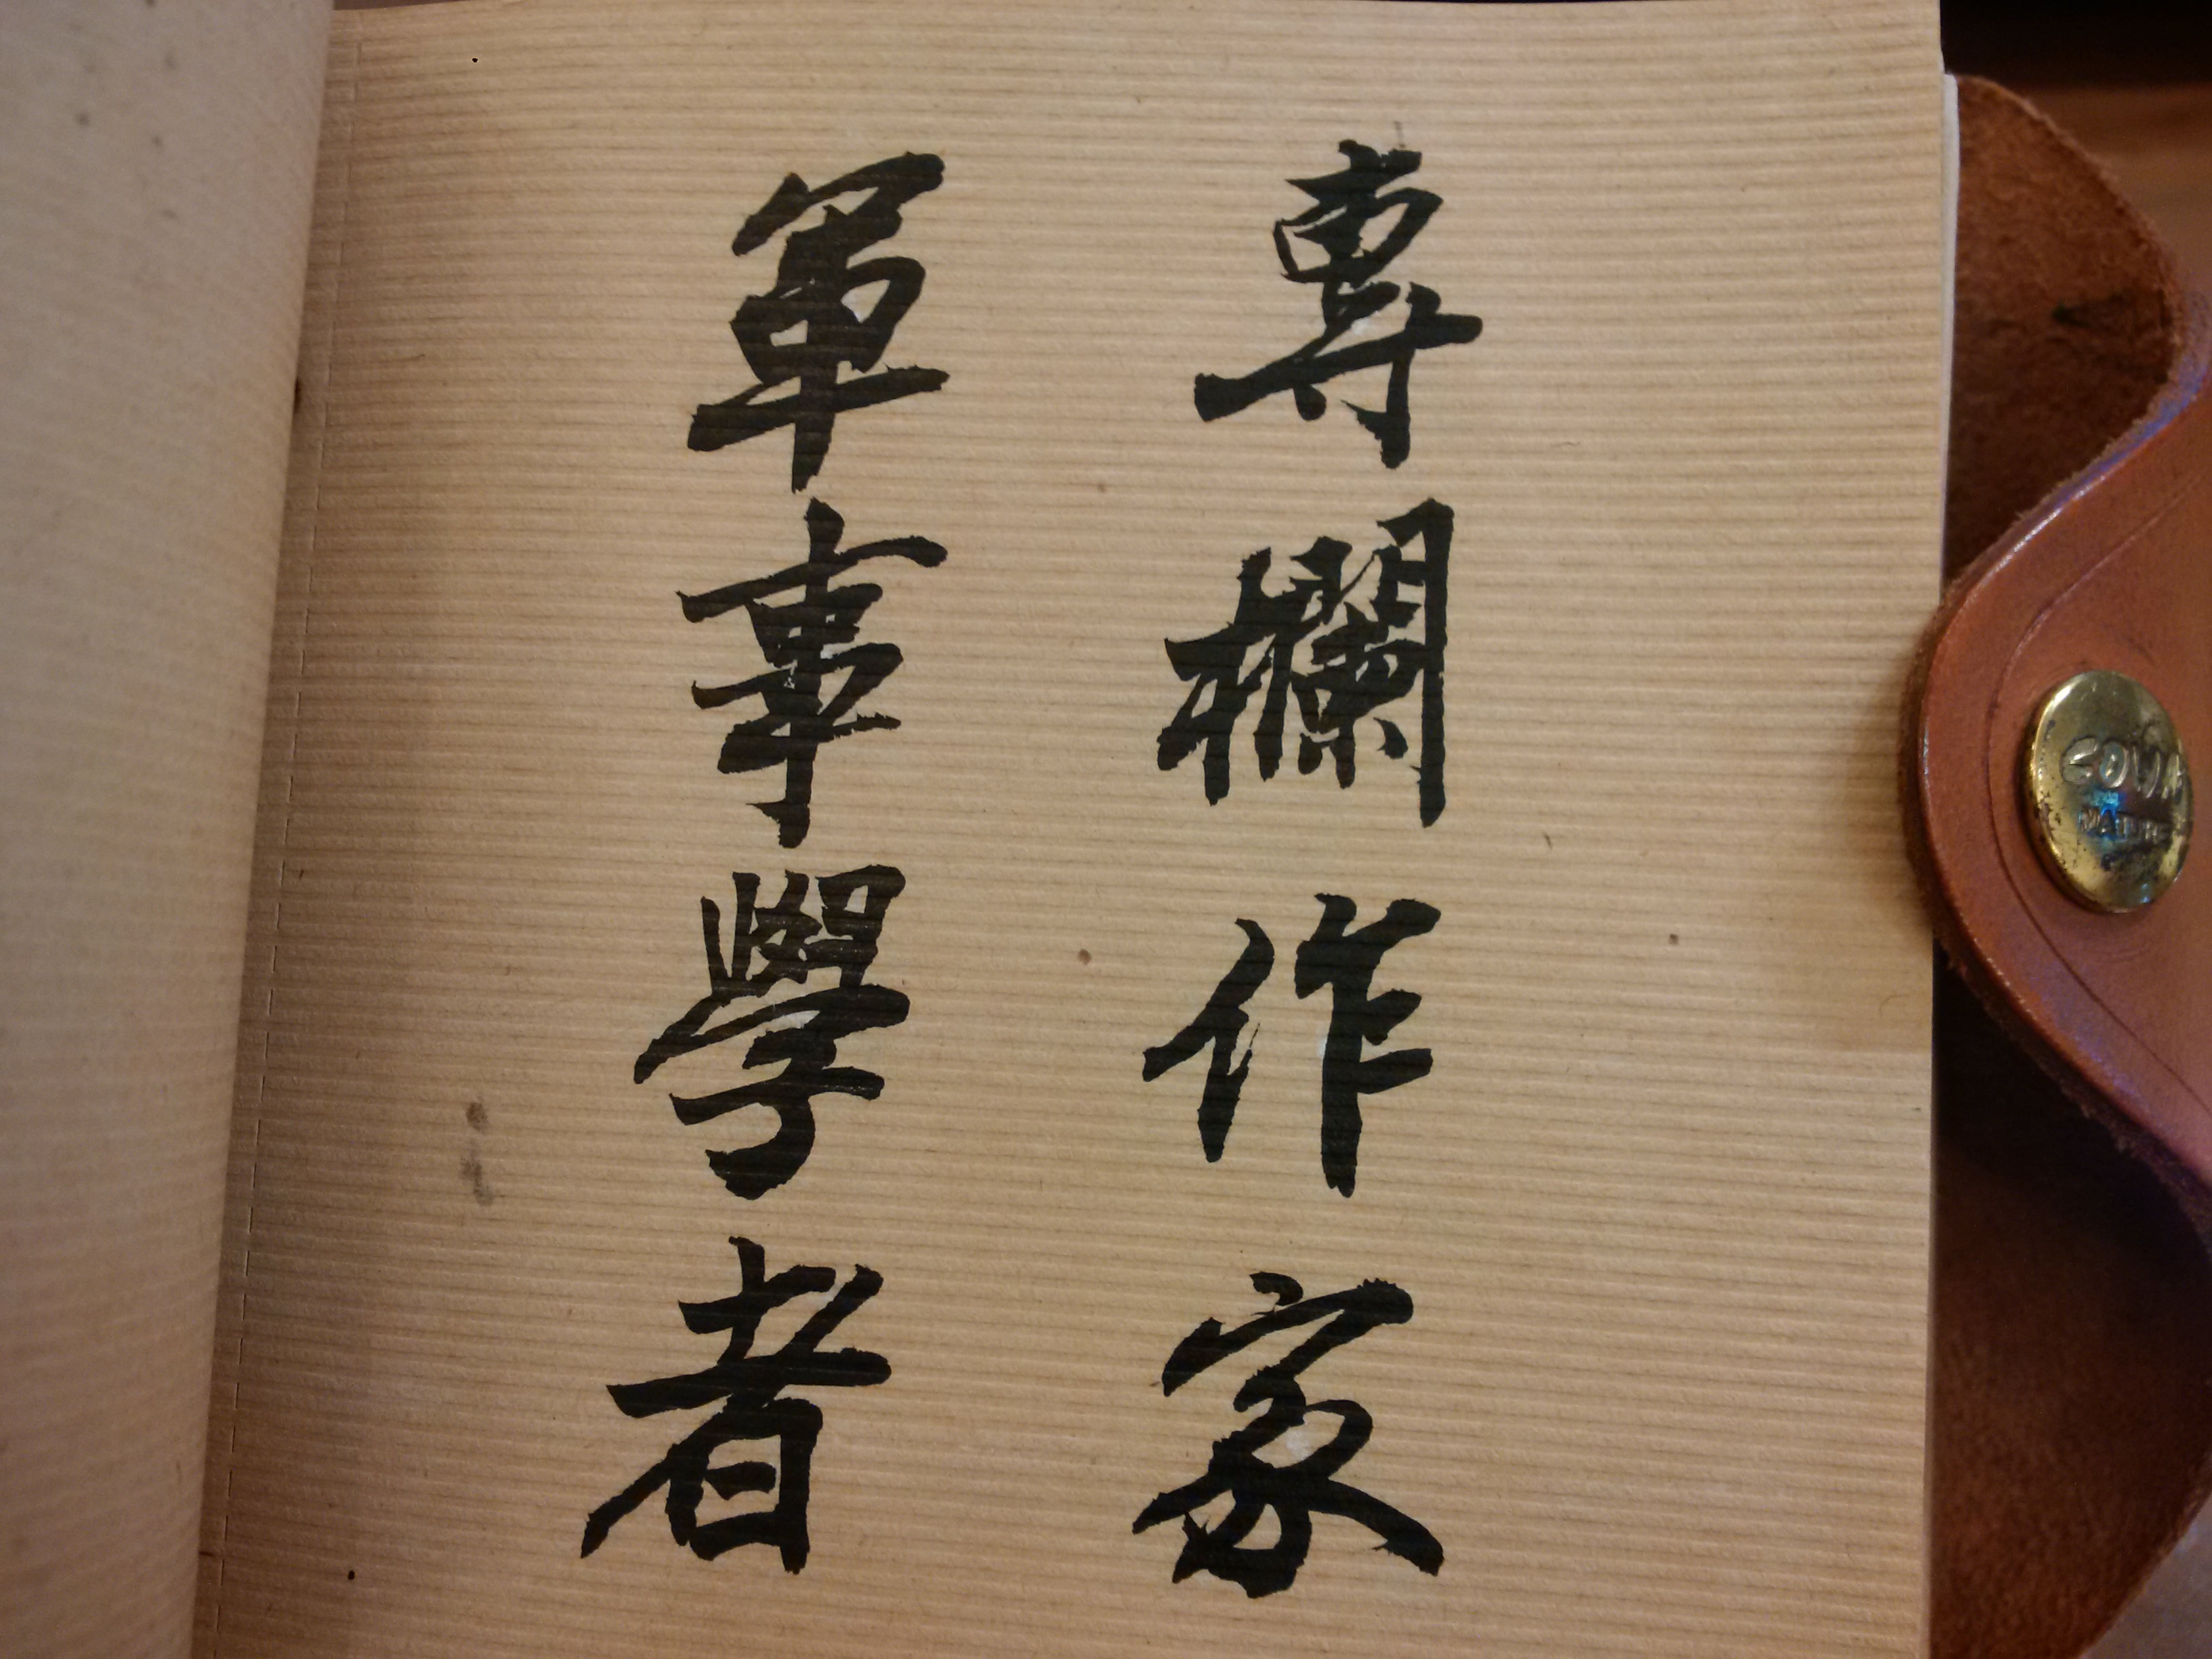 專欄作家
軍事學者
NATURE